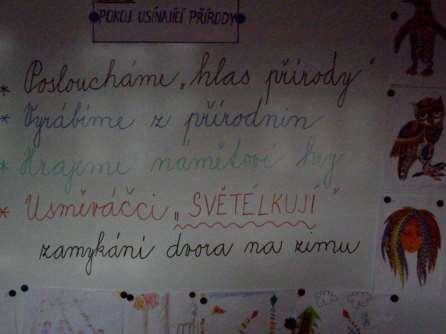 POKOJ USÍNAJÍCÍ PŘÍRODY
* Posloucháme „hlas přírody"
* Vyrábíme z přírodnin
* Hrajeme námětové hry
* Usměváčci „SVĚTÉLKUJÍ"
zamykání dvora na zimu